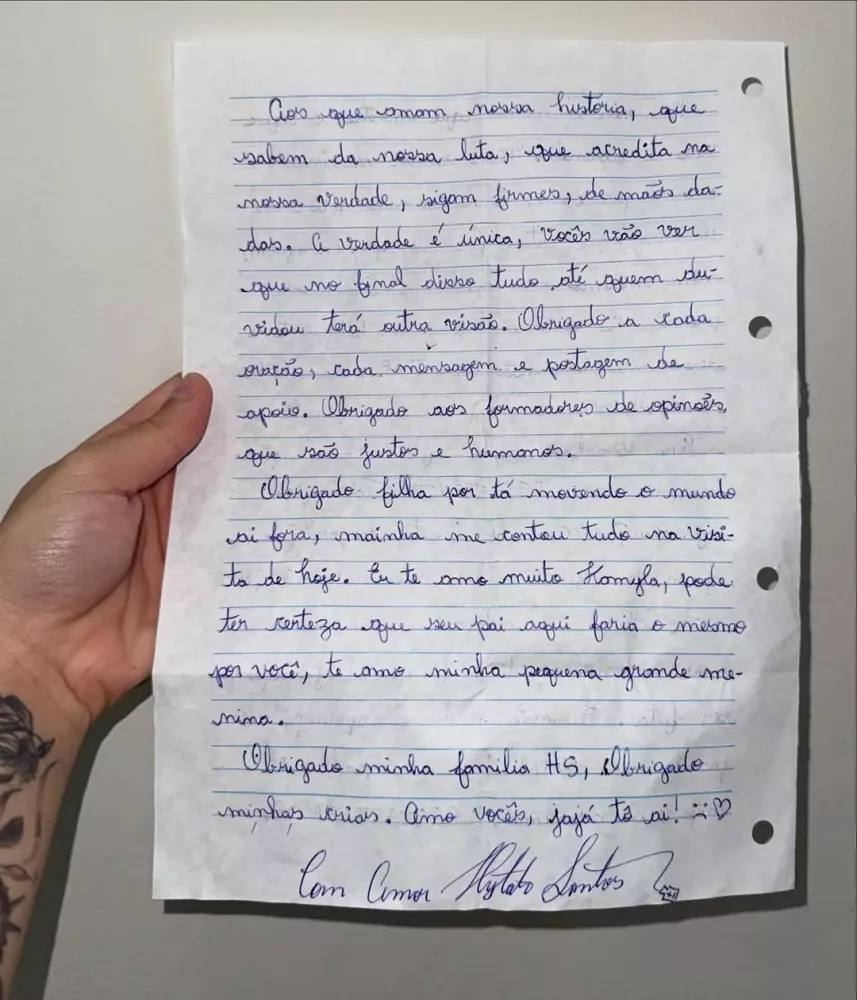 Aos que amam nossa história, que
sabem da nossa luta, que acredita na
nossa verdade, sigam firmes, de mãos da-
das. A verdade é única, vocês vão ver
que no final disso tudo até quem du-
vidou terá outra visão. Obrigado a cada
oração, cada mensagem e postagem de
apoio. Obrigado aos formadores de opinoẽs,
que são justos e humanos.
Obrigado filha por tá movendo o mundo
ai fora, mainha me contou tudo na visi-
ta de hoje. Eu te amo muito Kamyla, pode
ter certeza que seu pai aqui faria o mesmo
por você, te amo minha pequena grande me-
nina.
Obrigado minha familia HS, Obrigado
minhas crias. Amo vocês, jajá tô ai! :) ♡
Com Amor Hytalo Santos